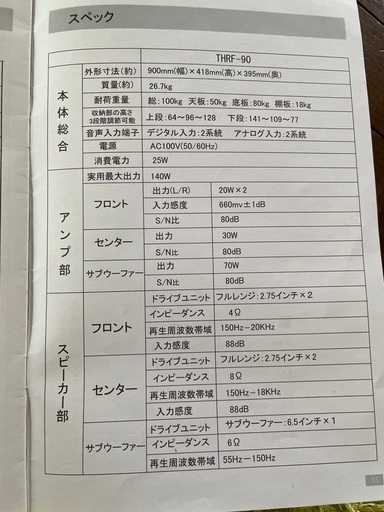 スペック
THRF-90
本体総合
外形寸法(約) 900mm(幅)×418mm(高)×395mm(奥)
質量(約) 26.7kg
耐荷重量 総:100kg 天板:50kg 底板:80kg 棚板:18kg
収納部の高さ
3段階調節可能 上段:64〜96〜128 下段:141〜109〜77
音声入力端子 デジタル入力:2系統 アナログ入力:2系統
電源 AC100V(50/60Hz)
消費電力 25W
アンプ部
実用最大出力 140W
フロント
出力(L/R) 20W×2
入力感度 660mv±1dB
S/N比 80dB
センター
出力 30W
S/N比 80dB
サブウーファー
出力 70W
S/N比 80dB
スピーカー部
フロント
ドライブユニット フルレンジ:2.75インチ×2
インピーダンス 4Ω
再生周波数帯域 150Hz-20KHz
入力感度 88dB
センター
ドライブユニット フルレンジ:2.75インチ×2
インピーダンス 8Ω
再生周波数帯域 150Hz-18KHz
入力感度 88dB
サブウーファー
ドライブユニット サブウーファー:6.5インチ×1
インピーダンス 6Ω
再生周波数帯域 55Hz-150Hz